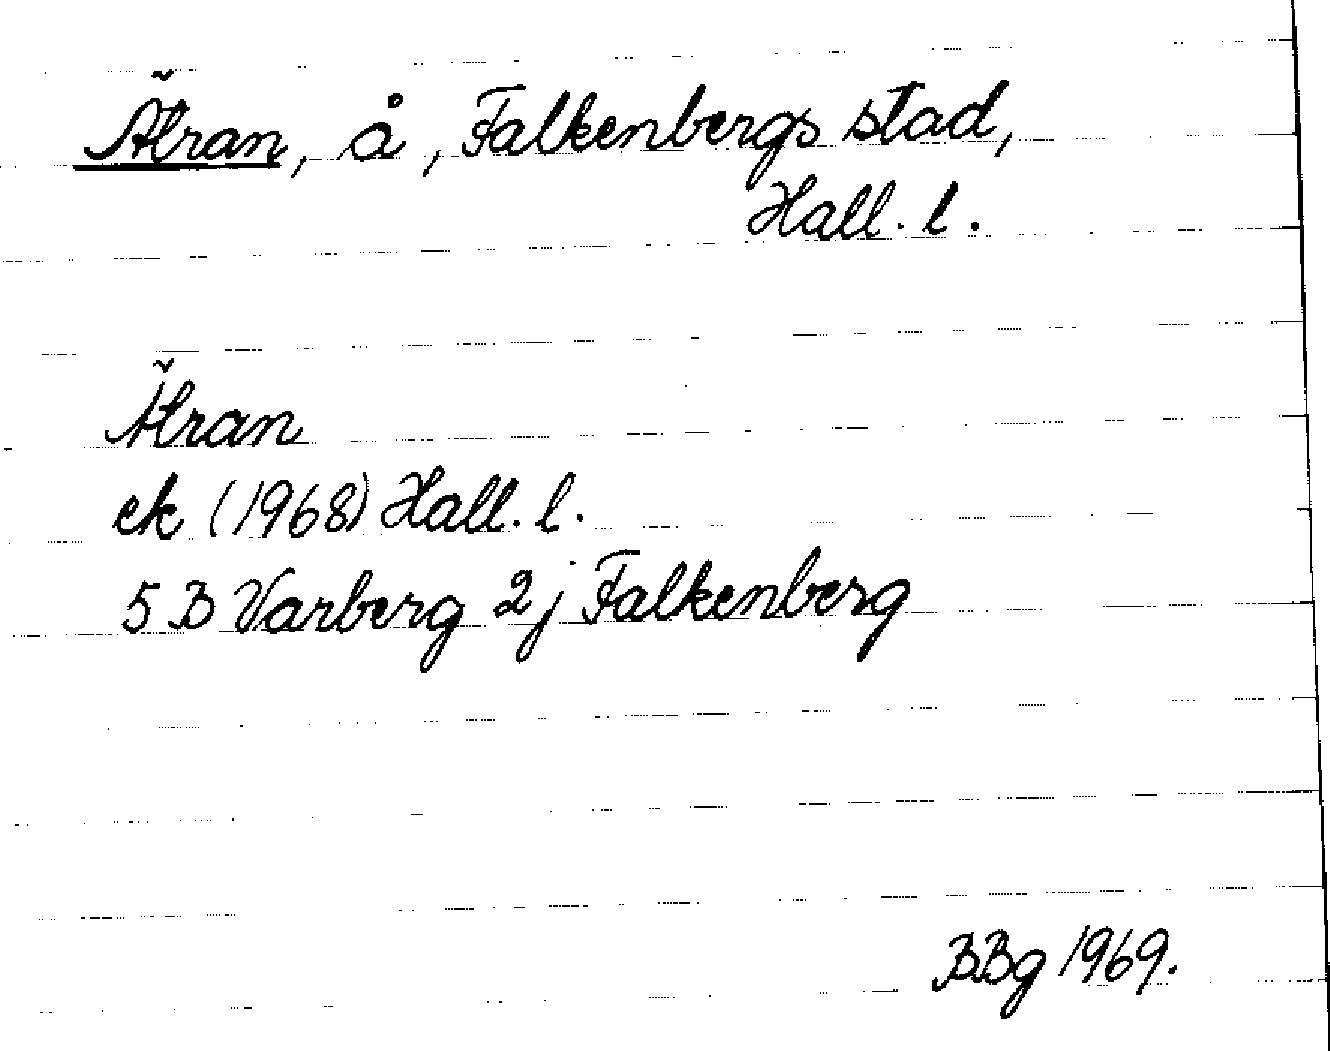 Ätran, å, Falkenbergs stad,
Hall. l.
Ätran
ek (1968) Hall. l.
5 B Varberg 2j Falkenberg
BBg 1969.